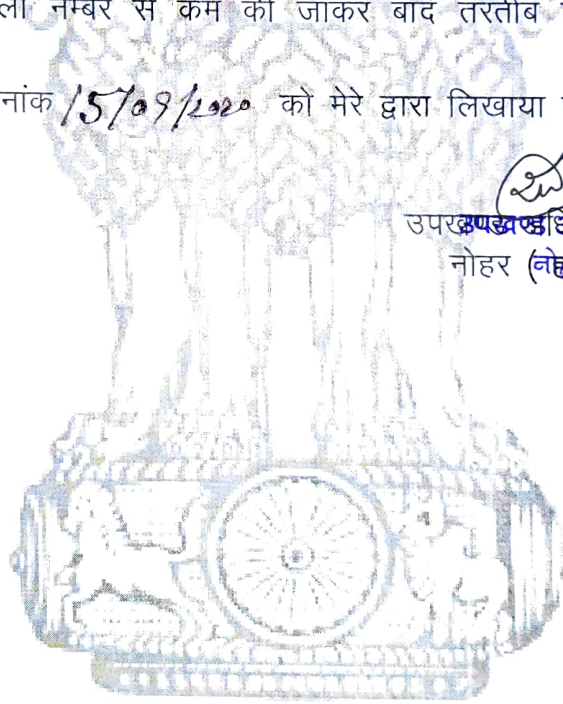 ली नम्बर से कम की जाकर बाद तरतीब
नांक 15/09/2020 को मेरे द्वारा लिखाया
नोहर